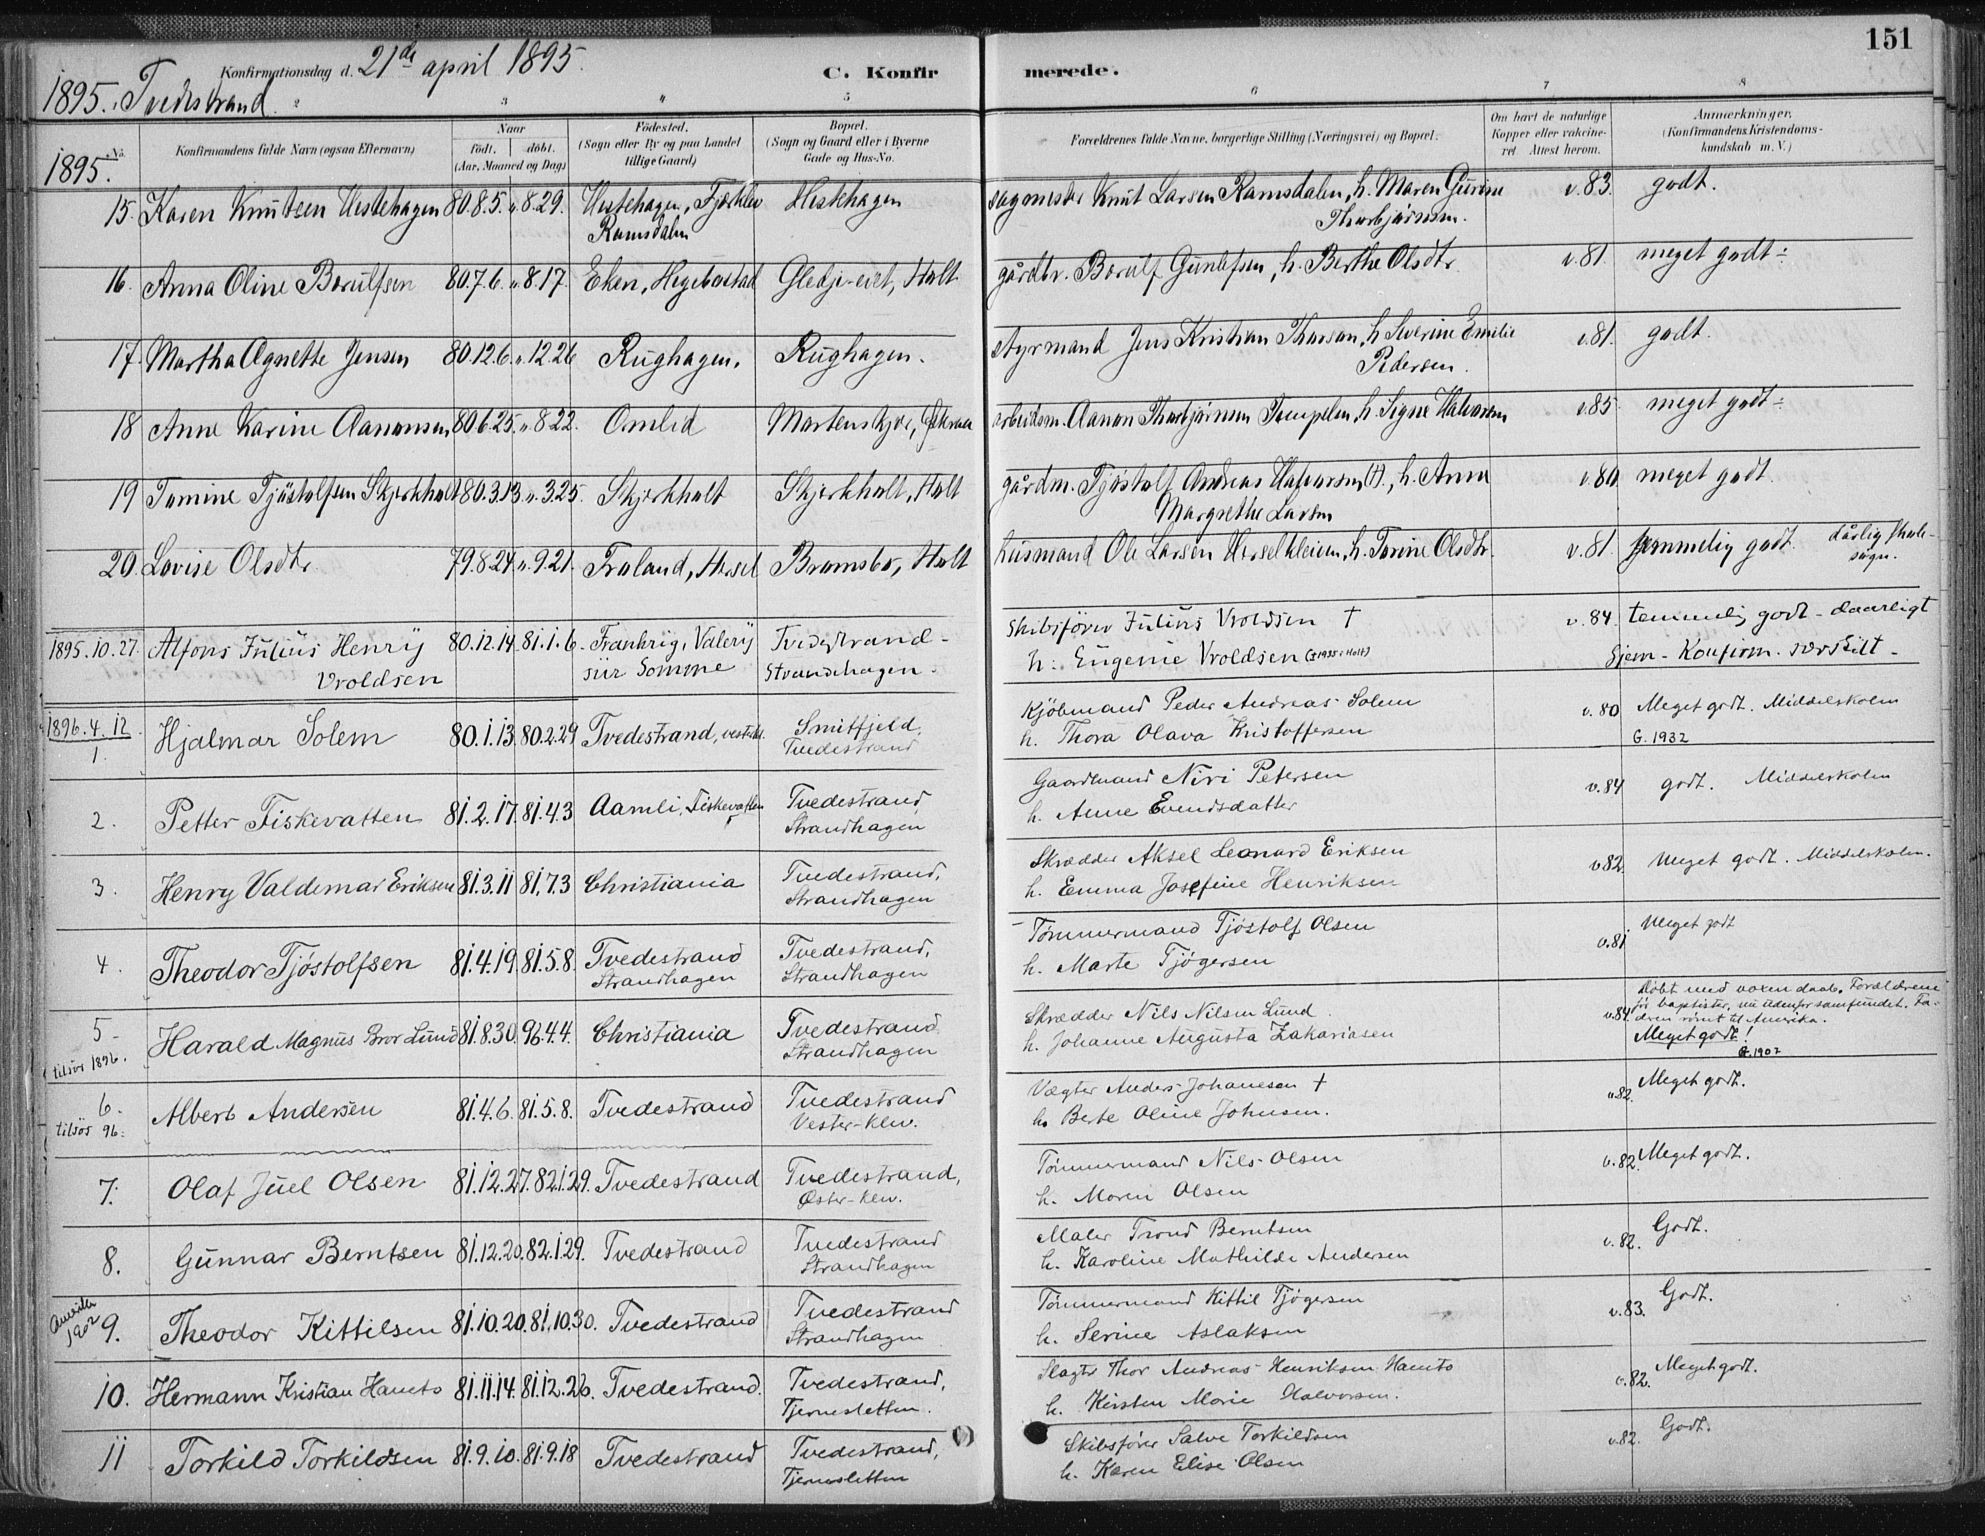 151
Konfirmationsdag d. 21de april 1895.
C. Konfirmerede.
1895. Tvedestrand.
2 3 4 5 6 7 8
No. Konfirmandens fulde Navn (ogsaa Efternavn) Naar födt. döbt. (Aar, Maaned og Dag) Födested. (Sogn eller By og paa Landet tillige Gaard) Bopæl. (Sogn og Gaard eller i Byerne Gade og Hus-No. Forældrenes fulde Navne, borgerlige Stilling (Næringsvei) og Bopæl. Om havt de naturlige Kopper eller vakcineret Attest herom. Anmærkninger. (Konfirmandens Kristendomskundskab m. V.)
1895.
15. Karen Knutsen Hestehagen 80.8.5. " 8.29. Hestehagen, Hestehagen Knut Larsen Ramsdalen, h. Maren Gurine v. 83. godt.
Ramsdalen Thorbjørnsen.
16. Anna Oline Borulfsen 80.7.6. " 8.17. Eken, Hegebostad Holt gårdbr. Borulf Gunlefsen, h. Berthe Olsdtr. v. 81. meget godt ÷
17. Martha Agnette Jensen 80.12.6. " 12.26 Rughagen. Rughagen. styrmand Jens Kristian Thorson, h. Severine Emilie v. 81. godt.
Pedersen.
18 Anne Karine Aanonsen 80.6.25. " 8.22. Omlid arbeidsm. Aanon Thorbjørnsen h. Signe Halvorsen v. 85. meget godt ÷
19 Tomine Tjöstolfsen Skjerkholt 80.3.13. " 3.25. Skjerkholt Skjerkholt, Holt gårdm. Tjöstolf Andreas Halvorsen (†), h. Anna v. 80. meget godt.
Margrethe Larsen
20. Lovise Olsdtr. 79.8.24. " 9.21. Holt husmand Ole Larsen h. Torine Olsdtr. v. 81. temmelig godt. dårlig skole-
søgn.
1895.10.27. Alfons Julius Henry 80.12.14. 81.1.6. Frankrig, Valery Tvedestrand - Skibsfører Julius Vroldsen † v. 84. temmelig godt - daarligt
Vroldsen sur Somme Strandhagen. h. Eugenie Vroldsen Hjem - Konfirm. særskilt -
1896.4.12. Hjalmar Solem 80.1.13. 80.2.29 Tvedestrand, Smitfjeld, Kjöbmand Peder Andreas Solem v. 80 Meget godt. Middelskolen
1. Tvedestrand h. Thora Olava Kristoffersen G. 1932
2. Petter Fiskevatten 81.2.17. 81.4.3 Aamli, Fiskevatten Tvedestrand Gaardmand Niri Petersen v. 84 godt. Middelskolen
Strandhagen h. Anne Evendsdatter
3. Henry Valdemar Eriksen 81.3.11 81.7.3 Christiania Tvedestrand, Skrædder Aksel Leonard Eriksen v. 82. Meget godt. Middelskolen.
Strandhagen h. Emma Josefine Henriksen
4. Theodor Tjöstolfsen 81.4.19. 81.5.8. Tvedestrand Tvedestrand, Tömmermand Tjöstolf Olsen v. 81. Meget godt
Strandhagen Strandhagen h. Marte Tjögersen
Döbt med voxen daab. Forældrene
för baptister, nu udenfor samfundet. Fa-
deren römt til Amerika.
5 - Harald Magnus Bror Lund 81.8.30. 96.4.4. Christiania Tvedestrand Skrædder Nils Nilsen Lund v. 84. Meget godt!
tilsös 1896. Strandhagen h. Johanne Augusta Zakariasen G. 1902
6. Albert Andersen 81.4.6. 81.5.8. Tvedestrand Tvedestrand Vægter Anders Johanesen † v. 82. Meget godt.
tilsös 96. Vester-Klev. h. Berte Oline Johnsen.
7. Olaf Juel Olsen 81.12.27. 82.1.29. Tvedestrand Tvedestrand, Tömmermand Nils Olsen v. 82. Meget godt.
Öster-Klev. h. Maren Olsen
8. Gunnar Berntsen 81.12.20. 82.1.29. Tvedestrand Tvedestrand Maler Trond Berntsen v. 82. Godt.
Strandhagen h. Karoline Mathilde Andersen
9. Theodor Kittilsen 81.10.20. 81.10.30. Tvedestrand Tvedestrand Tömmermand Kittil Tjögersen v. 83. Godt.
1902 Strandhagen h. Serine Aslaksen
10. Hermann Kristian Hamto 81.11.14. 81.12.26. Tvedestrand. Tvedestrand, Slagter Thor Andreas Henriksen Hamto v. 82. Meget godt.
Tjernesletten. h. Kirsten Marie Halvorsen.
11 Torkild Torkildsen 81.9.10. 81.9.18 Tvedestrand Tvedestrand, Skibsfører Salve Torkildsen v. 82. Godt.
Tjernesletten h. Karen Elise Olsen